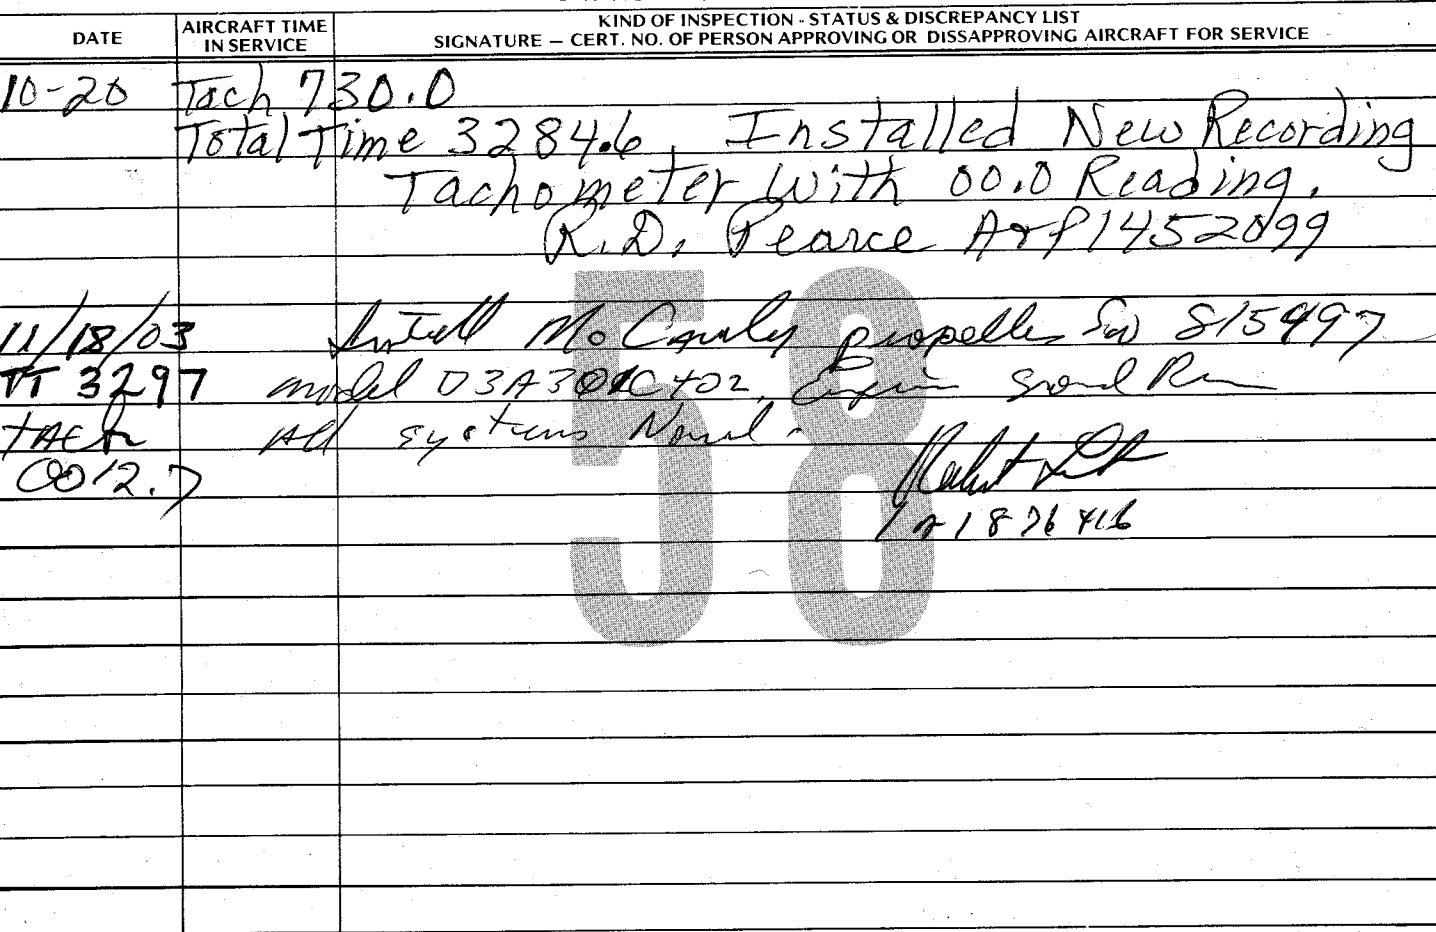 DATE
AIRCRAFT TIME
IN SERVICE
KIND OF INSPECTION - STATUS & DISCREPANCY LIST
SIGNATURE — CERT. NO. OF PERSON APPROVING OR DISSAPPROVING AIRCRAFT FOR SERVICE
10-20 Tach 730.0
Total Time 3284.6, Installed New Recording
Tachometer With 00.0 Reading.
R.D. Pearce A&P 1452099
58
11/18/03 Install McCauly propeller S/N 815497
TT 3297 model D3A3 C402, Engin Ground Run
TACh All systems Normal.
0012.7
1876416